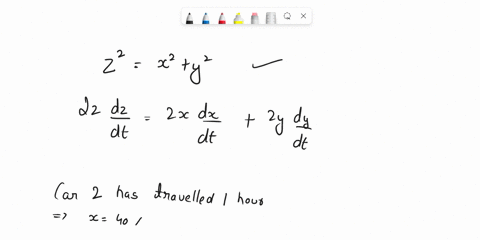 z² = x² + y²
2z dz/dt = 2x dx/dt + 2y dy/dt
Car 2 has travelled 1 hour
=> x = 40 /